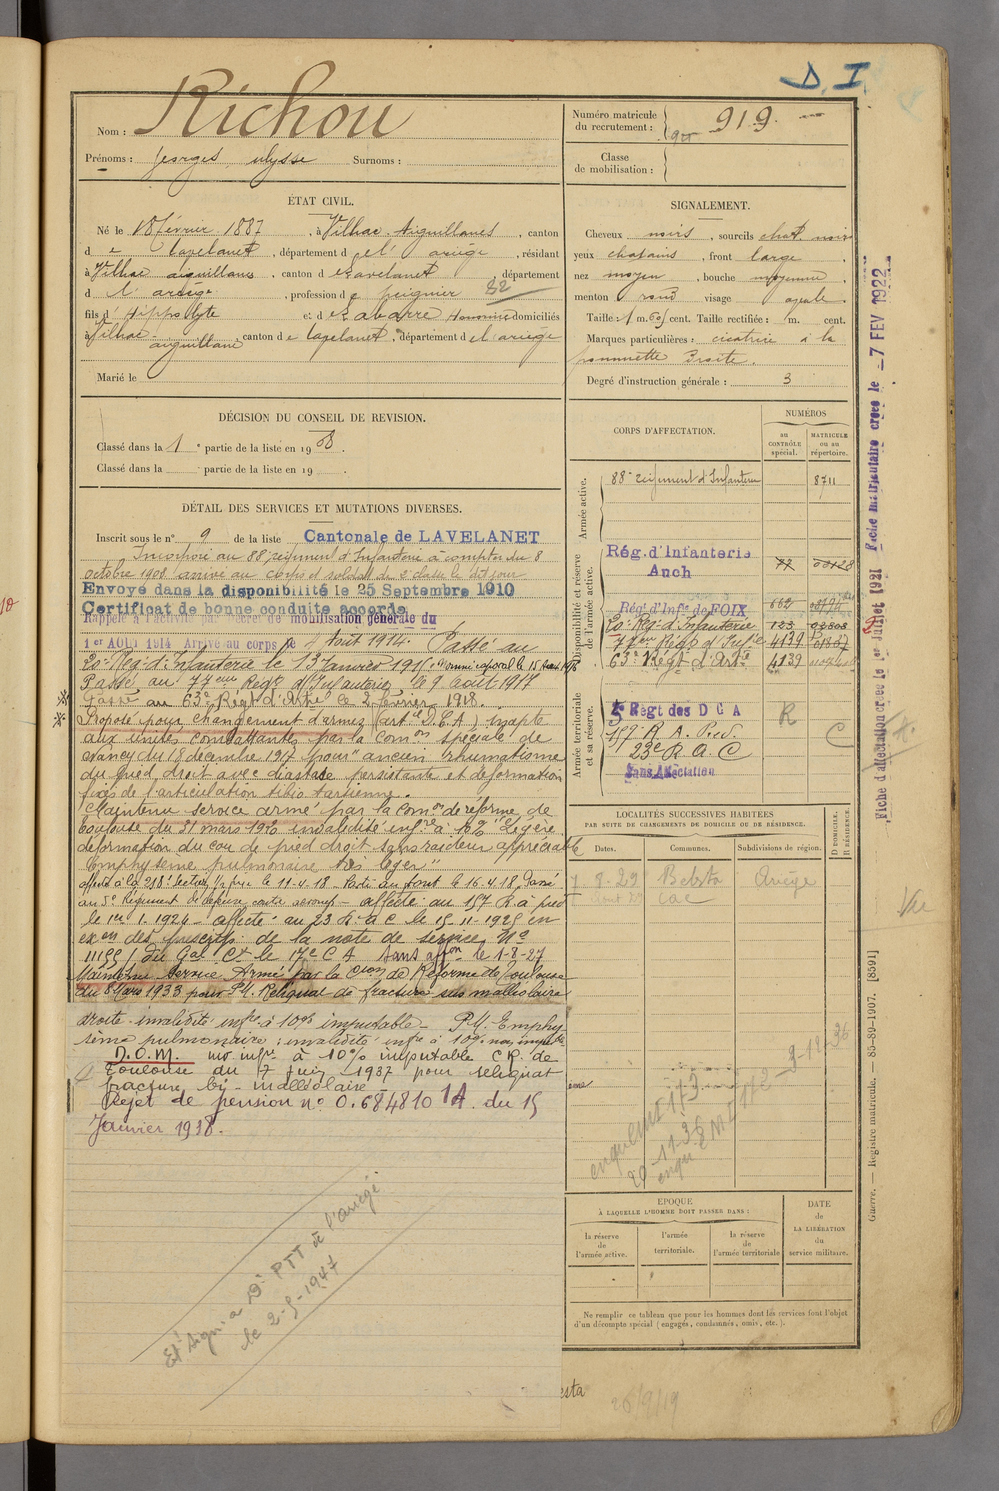 D. I.
Nom : Richou
Prénoms : Georges Ulysse Surnoms :
Numéro matricule du recrutement : 919
Classe de mobilisation :
ÉTAT CIVIL.
Né le 18 février 1887, à Vilhac-Aiguillanes, canton
de Lavelanet, département de l'ariège, résidant
à Vilhac aiguillanes, canton de Lavelanet, département
d l'ariège, profession de peignier 82
fils d'Hippolyte et de Lavarre Honorine domiciliés
à Vilhac aiguillane, canton de Lavelanet, département de l'ariège
Marié le
SIGNALEMENT.
Cheveux noirs, sourcils chat. noir
yeux chatains, front large,
nez moyen, bouche moyenne,
menton rond visage ovale
Taille : 1 m. 60 cent. Taille rectifiée : m. cent.
Marques particulières : cicatrice à la
pommette Droite.
Degré d'instruction générale : 3
DÉCISION DU CONSEIL DE REVISION.
Classé dans la 1e partie de la liste en 1908.
Classé dans la partie de la liste en 19 .
DÉTAIL DES SERVICES ET MUTATIONS DIVERSES.
Inscrit sous le n° 9 de la liste Cantonale de LAVELANET
Incorporé au 88e régiment d'Infanterie à compter du 8
octobre 1908 arrivé au corps et soldat de 2e classe le dit jour
Envoyé dans la disponibilité le 25 Septembre 1910
Certificat de bonne conduite accordé
Rappelé à l'activité par Décret de mobilisation générale du
1er AOUT 1914 Arrivé au corps le 4 Aout 1914. Passé au
20e Rég. d'Infanterie le 13 Janvier 1915
Passé au 77eme Régt d'Infanterie le 9 Août 1917
Passé au 63e Régt d'Artie le 2 février 1918.
Proposé pour changement d'armes (art. le D.C.A) inapte
aux unités combattantes par la Comon spéciale de
Nancy du 18 décembre 1917 pour "ancien rhumatisme
du pied droit avec diastase persistante et déformation
de l'articulation tibio tarsienne.
Maintenu service armé par la Comon de réforme de
Toulouse du 31 mars 1920 invalidité infre à 10% "Légère
déformation du cou de pied droit sans raideur appréciable
Emphysème pulmonaire très léger"
le 11-4-18 Parti au front le 16.4.18. Passé
au 5e Régiment de défense contre aéronefs - affecté au 157 R.A. pied
le 1er 1. 1924 - affecté au 23 R.A.C le 15-11-1925 en
exon des prescrip. de la note de service No
11155/ du Gal Ct le 17e C A Sans affon le 1-8-27
Maintenu Service Armé par la Cion de Réforme de Toulouse
du 8 Mars 1933 pour P.M. Reliquat de fracture sus malléolaire
droite invalidité infre à 10% imputable - P.M. Emphy-
sème pulmonaire : invalidité infre à 10% non imputable
D.O.M. inv infre à 10% imputable C.R. de
Toulouse du 7 juin 1937 pour reliquat
fracture bi-malléolaire
Rejet de pension n° 0.684810 1A du 15
Janvier 1938.
PTT à l'ariège
le 2-9-1947
CORPS D'AFFECTATION.
NUMÉROS
au CONTRÔLE spécial.
MATRICULE ou au répertoire.
Armée active.
88e régiment d'Infanterie 8711
Disponibilité et réserve de l'armée active.
Rég. d'Infanterie Auch
Régt d'Infie de FOIX 662
20e Rég. d'Infanterie 123
77eme Régt d'Infie 4139
63e Régt d'Artie 4139
Armée territoriale et sa réserve.
5 Régt des D C A R
157e R. A. Pied. C
23e R.A.C
Sans Affectation
LOCALITÉS SUCCESSIVES HABITÉES
PAR SUITE DE CHANGEMENTS DE DOMICILE OU DE RÉSIDENCE.
Dates. Communes. Subdivisions de région. D DOMICILE. R RÉSIDENCE.
8-29 Belesta Ariège
enquête 173
20-11-36
9-12-36
ÉPOQUE
À LAQUELLE L'HOMME DOIT PASSER DANS :
la réserve de l'armée active.
l'armée territoriale.
la réserve de l'armée territoriale
DATE de LA LIBÉRATION du service militaire.
Ne remplir ce tableau que pour les hommes dont les services font l'objet
d'un décompte spécial (engagés, condamnés, omis, etc.).
esta
26/9/19
Fiche d'affectation créée le 1er Juillet 1921 Fiche matriculaire créée le 7 FEV 1922
Guerre. — Registre matricule. — 85-89-1907. [8591]